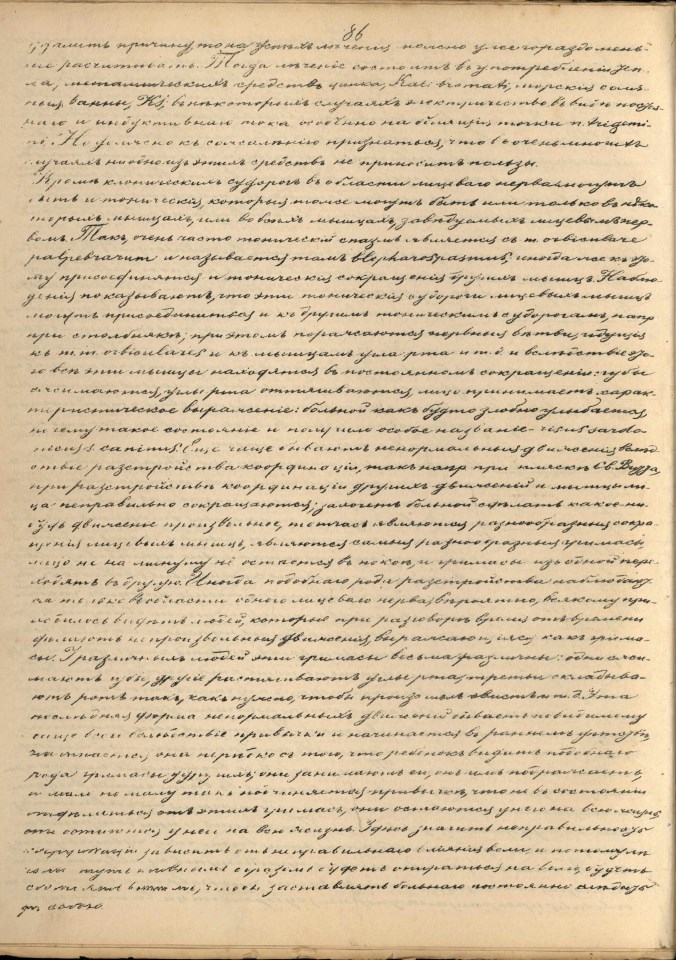 86
удалить причину, то на успѣхъ лѣченія можно уже гораздо мень-
ше расчитывать. Тогда лѣченіе состоитъ въ употребленіи
металлическихъ средствъ цинка, Kali bromati, морскія соля-
ныя ванны, KJ; въ нѣкоторыхъ случаяхъ электричество въ видѣ постоян-
наго и индуктивнаго тока особенно на болящія точки n. trigemi-
ni. Но должно къ сожалѣнію признаться, что въ очень многихъ
случаяхъ ни одно изъ этихъ средствъ не приноситъ пользы.
Кромѣ клоническихъ судорогъ въ области лицеваго нерва могутъ
быть и тоническія, которыя тоже могутъ быть или только въ нѣко-
торыхъ мышцахъ, или во всѣхъ мышцахъ, завѣдуемыхъ лицевымъ нер-
вомъ. Такъ, очень часто тоническій спазмъ является въ m. orbiculare
palpebrarum и называется тамъ blepharospasmus, иногда же къ это-
му присоединяются и тоническія сокращенія другихъ мышцъ. Наблю-
денія показываютъ, что эти тоническія судороги лицевыхъ мышцъ
могутъ присоединиться и къ другимъ тоническимъ судорогамъ, напр
при столбнякѣ; при этомъ поражаются нервныя вѣтви, идущія
къ m.m. orbiculares и къ мышцамъ угла рта и т.д. и вслѣдствіе это-
го всѣ эти мышцы находятся въ постоянномъ сокращеніи: губы
сжимаются, углы рта оттягиваются, лицо принимаетъ харак-
теристическое выраженіе: больной какъ будто злобно улыбается,
почему такое состояніе и получило особое названіе – risus sardo-
nicus s. caninus. Еще чаще бываютъ ненормальныя движенія вслѣд-
ствіе разстройства координаціи, такъ напр при пляскѣ Св. Витта,
при разстройствѣ координаціи другихъ движеній и мышцы ли-
ца неправильно сокращаются; захочетъ больной сдѣлать какое ни-
будь движеніе произвольное, тотчасъ являются разнообразныя сокра-
щенія лицевыхъ мышцъ, являются самыя разнообразныя гримасы,
лицо не на минуту не остается въ покоѣ, и гримасы изъ одной пере-
ходятъ въ другую. Иногда подобнаго рода разстройства наблюдают-
ся только въ области одного лицеваго нерва; вѣроятно, всякому при-
ходилось видѣть людей, которые при разговорѣ время отъ времени
дѣлаютъ непроизвольныя движенія, выражающіяся какъ грима-
сы. У различныхъ людей эти гримасы весьма различны: одни сжи-
маютъ губы, другіе растягиваютъ углы рта, третьи складыва-
ютъ ротъ такъ, какъ нужно, чтобы произошелъ свистъ и т.д. Эта
послѣдняя форма ненормальныхъ движеній бываетъ повидимому
чаще всего вслѣдствіе привычки и начинается въ раннемъ дѣтствѣ,
начинается она нерѣдко съ того, что ребенокъ видитъ подобнаго
рода гримасы у другихъ; они занимаютъ его, онъ имъ подражаетъ,
и мало по малу такъ подчиняется привычкѣ, что не въ состояніи
отдѣлаться отъ этихъ гримасъ, они остаются у него на всю жизнь
они остаются у него на всю жизнь. Здѣсь значитъ неправильность
зависитъ отъ неправильнаго вліянія воли, и потому
главнымъ образомъ будетъ опираться на волю, будетъ
чтобы заставлять больнаго постоянно слѣдить
за собою.